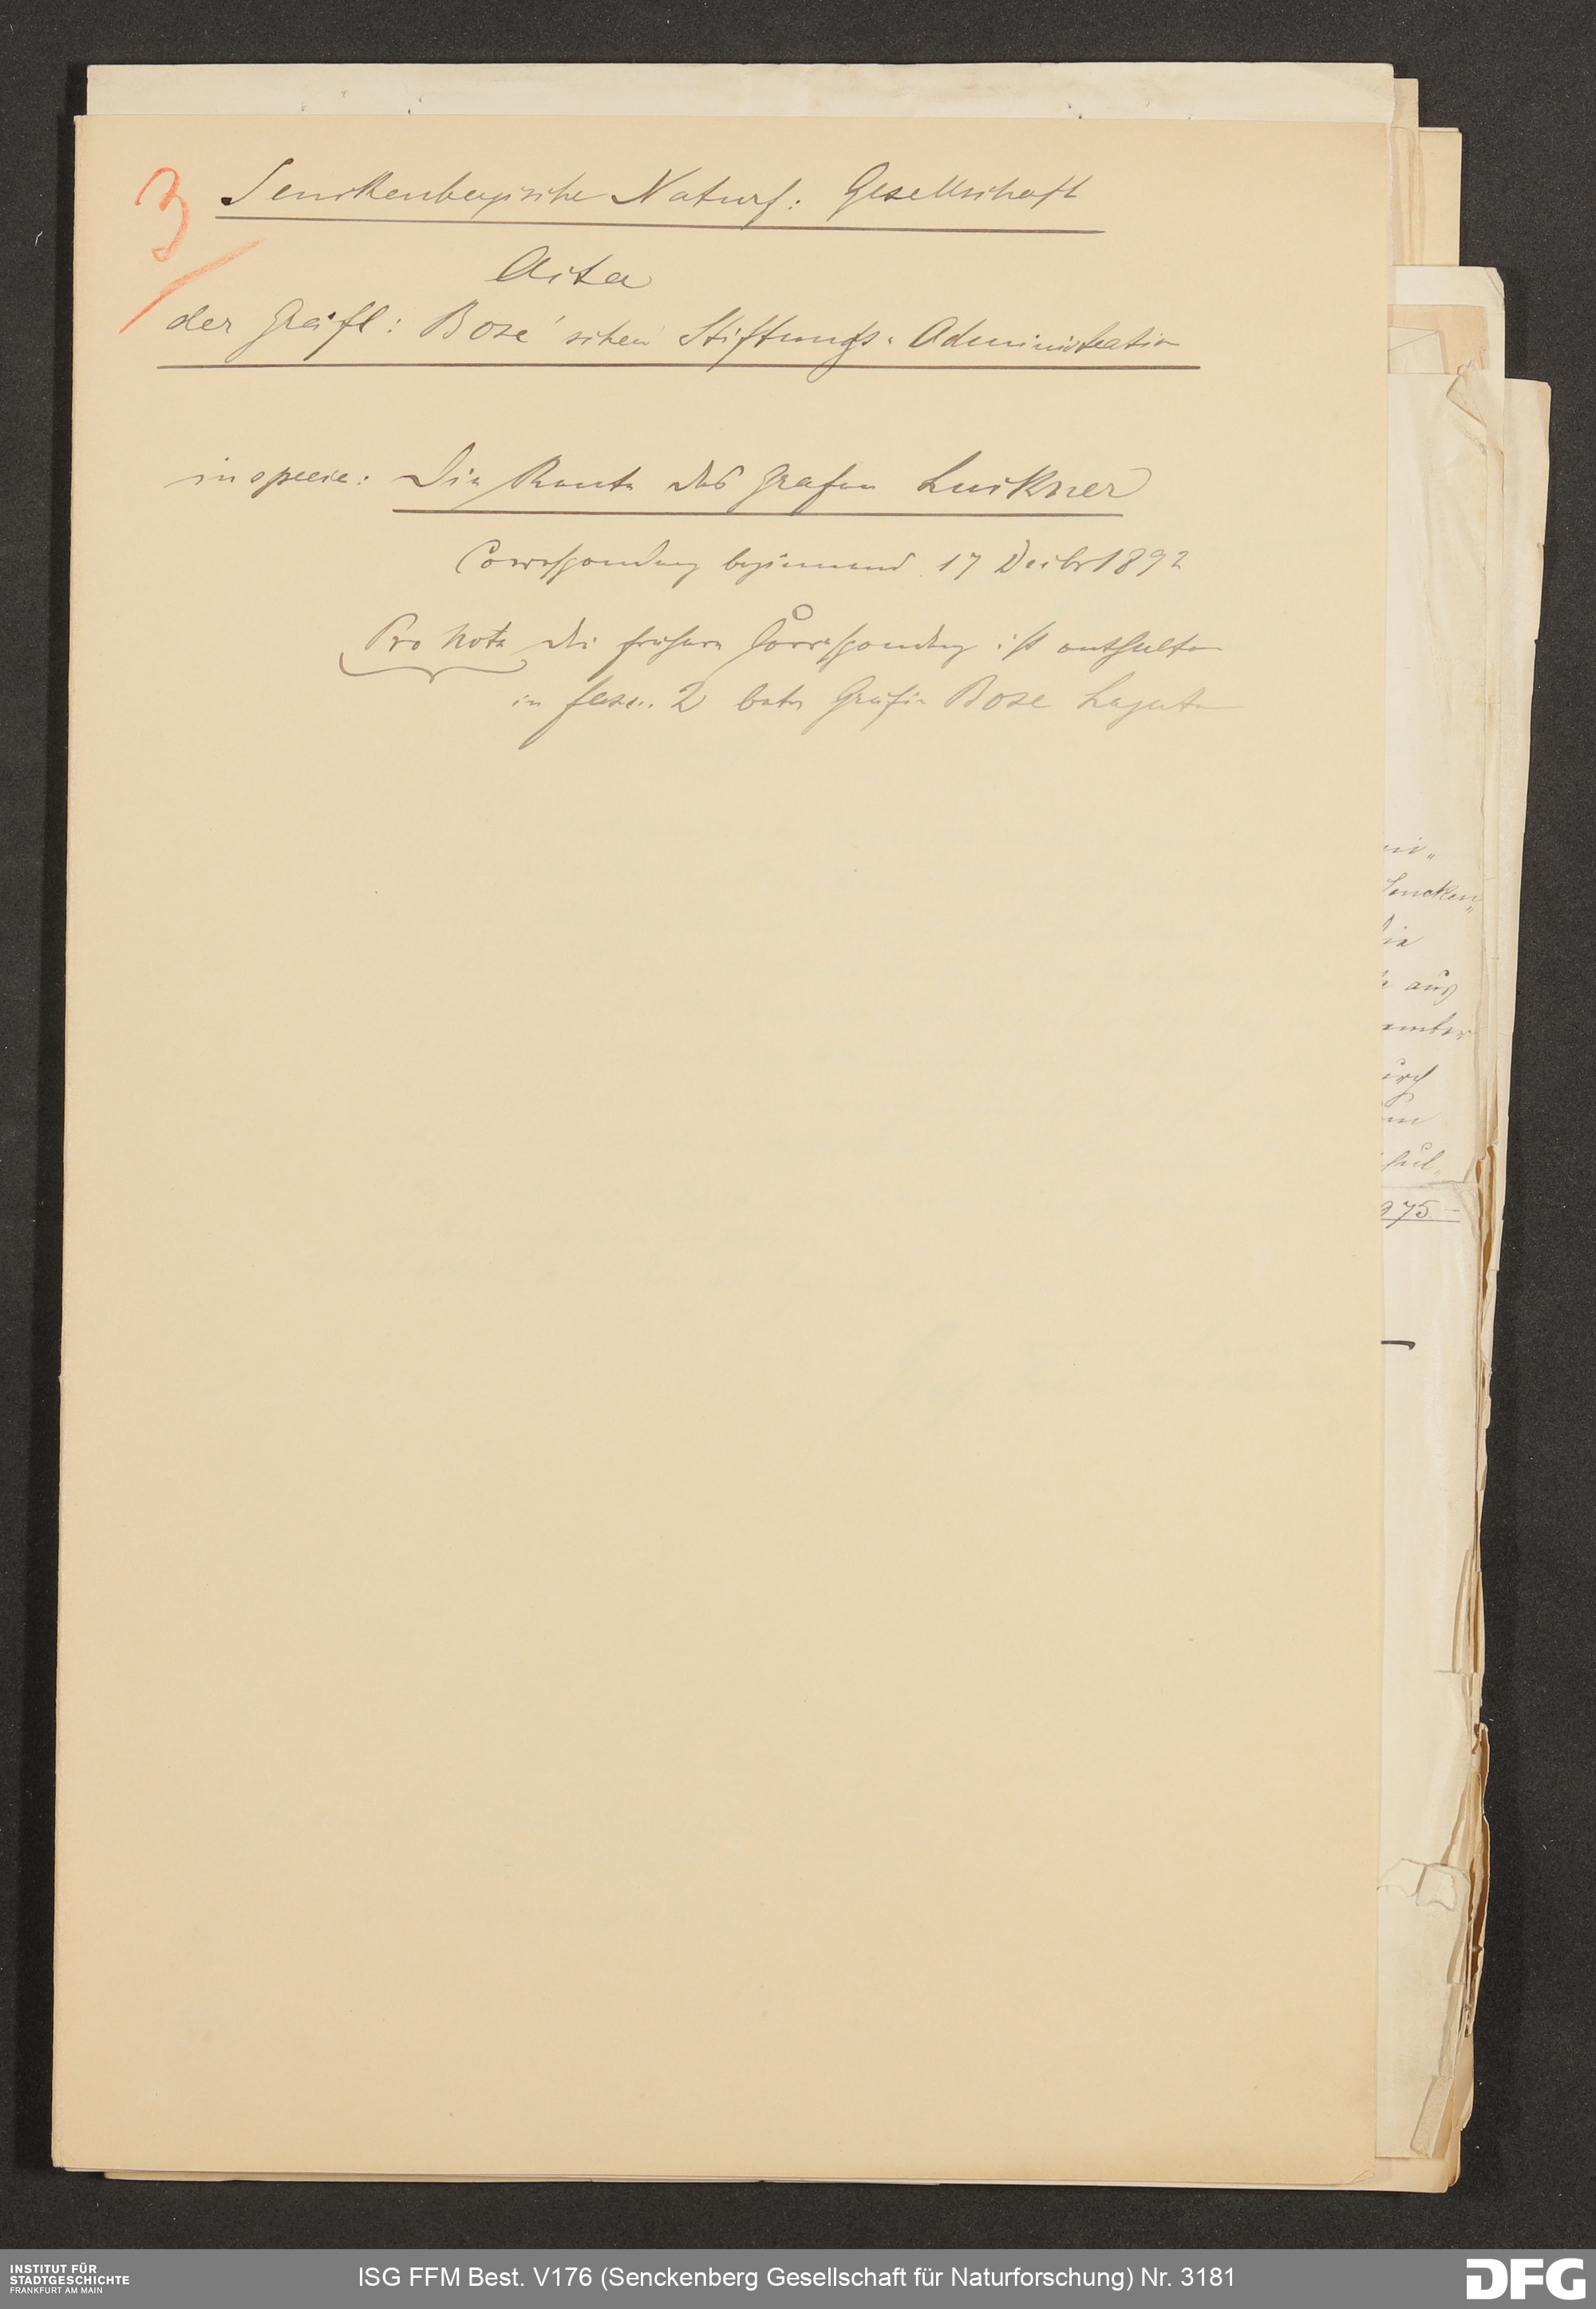 3
Senckenbergische Naturf: Gesellschaft
Acta
der Gräfl: Bose'schen Stiftungs-Administration
in specie: Die Rente des Grafen Luckner
Correspondenz beginnend 17 Decbr 1892
Pro Nota die frühere Correspondenz ist enthalten
in fasc. 2 betr Gräfin Bose Legate
Sencken„
die
aus
ember
urch
975.-
INSTITUT FÜR
STADTGESCHICHTE
FRANKFURT AM MAIN
ISG FFM Best. V176 (Senckenberg Gesellschaft für Naturforschung) Nr. 3181
DFG